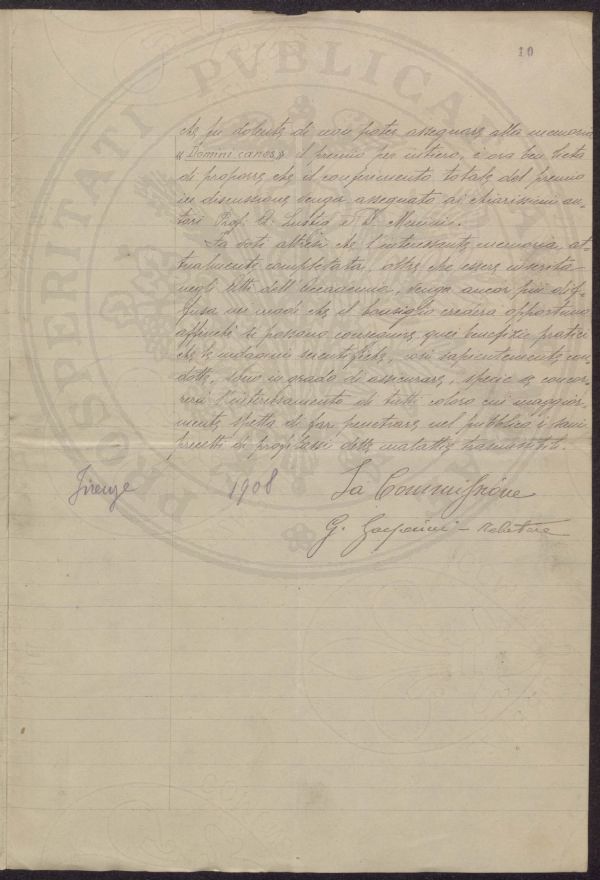 10
che fu dolente di non poter assegnare alla memoria
« Domini canes » il premio per intero, è ora ben lieta
di proporre che il conferimento totale del premio
in discussione venga assegnato ai chiarissimi au-
tori Prof. A. Lustig e D.
Fa voti altresì che l'interessante memoria, at-
tualmente completata, oltre che essere inserita
negli Atti dell'Accademia, venga ancor più dif-
fusa nei modi che il Consiglio crederà opportuno
affinchè si possano conseguire quei benefizi pratici
che le indagini scientifiche, così sapientemente con-
dotte, sono in grado di assicurare, specie se concor-
rerà l'interessamento di tutti coloro cui maggior-
mente spetta di far penetrare nel pubblico i sani
precetti di profilassi delle malattie trasmissibili.
Firenze 1908 La Commissione
G. - relatore
PROSPERITATI PVBLICAE